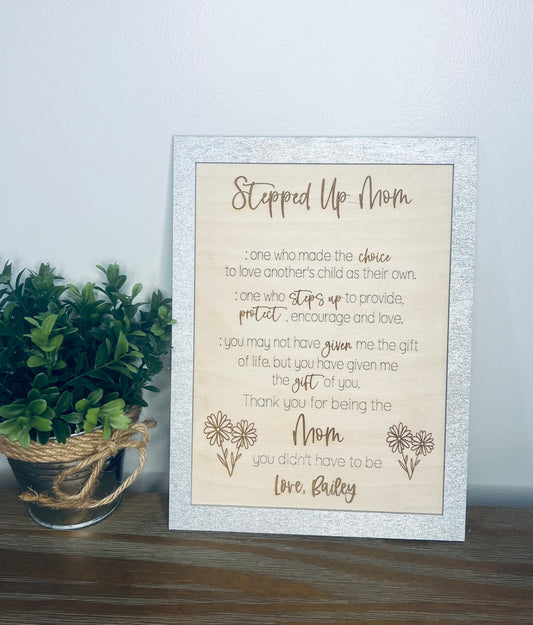 Stepped Up Mom
: one who made the choice
to love another's child as their own.
: one who steps up to provide,
protect , encourage and love.
: you may not have given me the gift
of life, but you have given me
the gift of you.
Thank you for being the
Mom
you didn't have to be
Love, Bailey